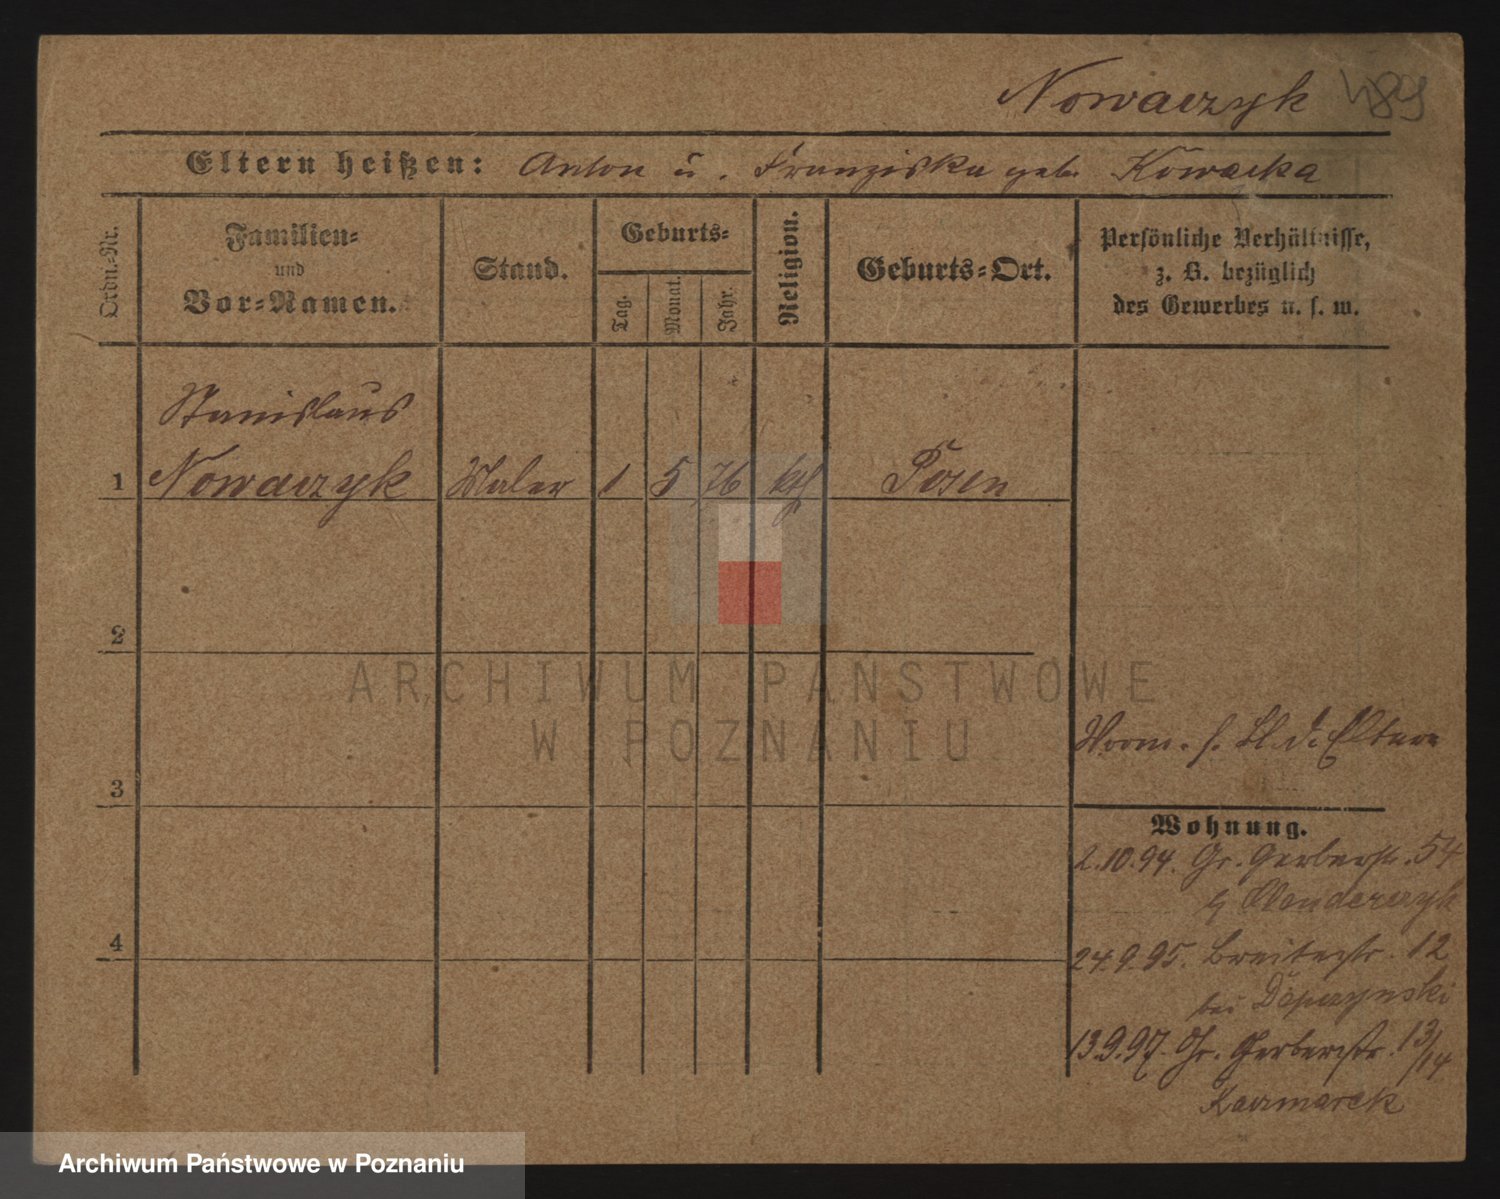 Nowaczyk 489
Eltern heißen: Anton u. Franziska geb. Kowacka
Ordn.-Nr.
Familien-
und
Vor-Namen.
Stand.
Geburts-
Tag.
Monat.
Jahr.
Religion.
Geburts-Ort.
Persönliche Verhältnisse,
z. B. bezüglich
des Gewerbes u. s. w.
Stanislaus
1 Nowaczyk Maler 1 5 76 kth Posen
2
ARCHIWUM PAŃSTWOWE
W POZNANIU
Vorm. s. Bl. d. Eltern
3
Wohnung.
2.10.94. Gr. Gerberstr. 54
24.9.95. Breitestr. 12
4
bei
13.9.97. Gr. Gerberstr. 13/14
Kaczmarek
Archiwum Państwowe w Poznaniu